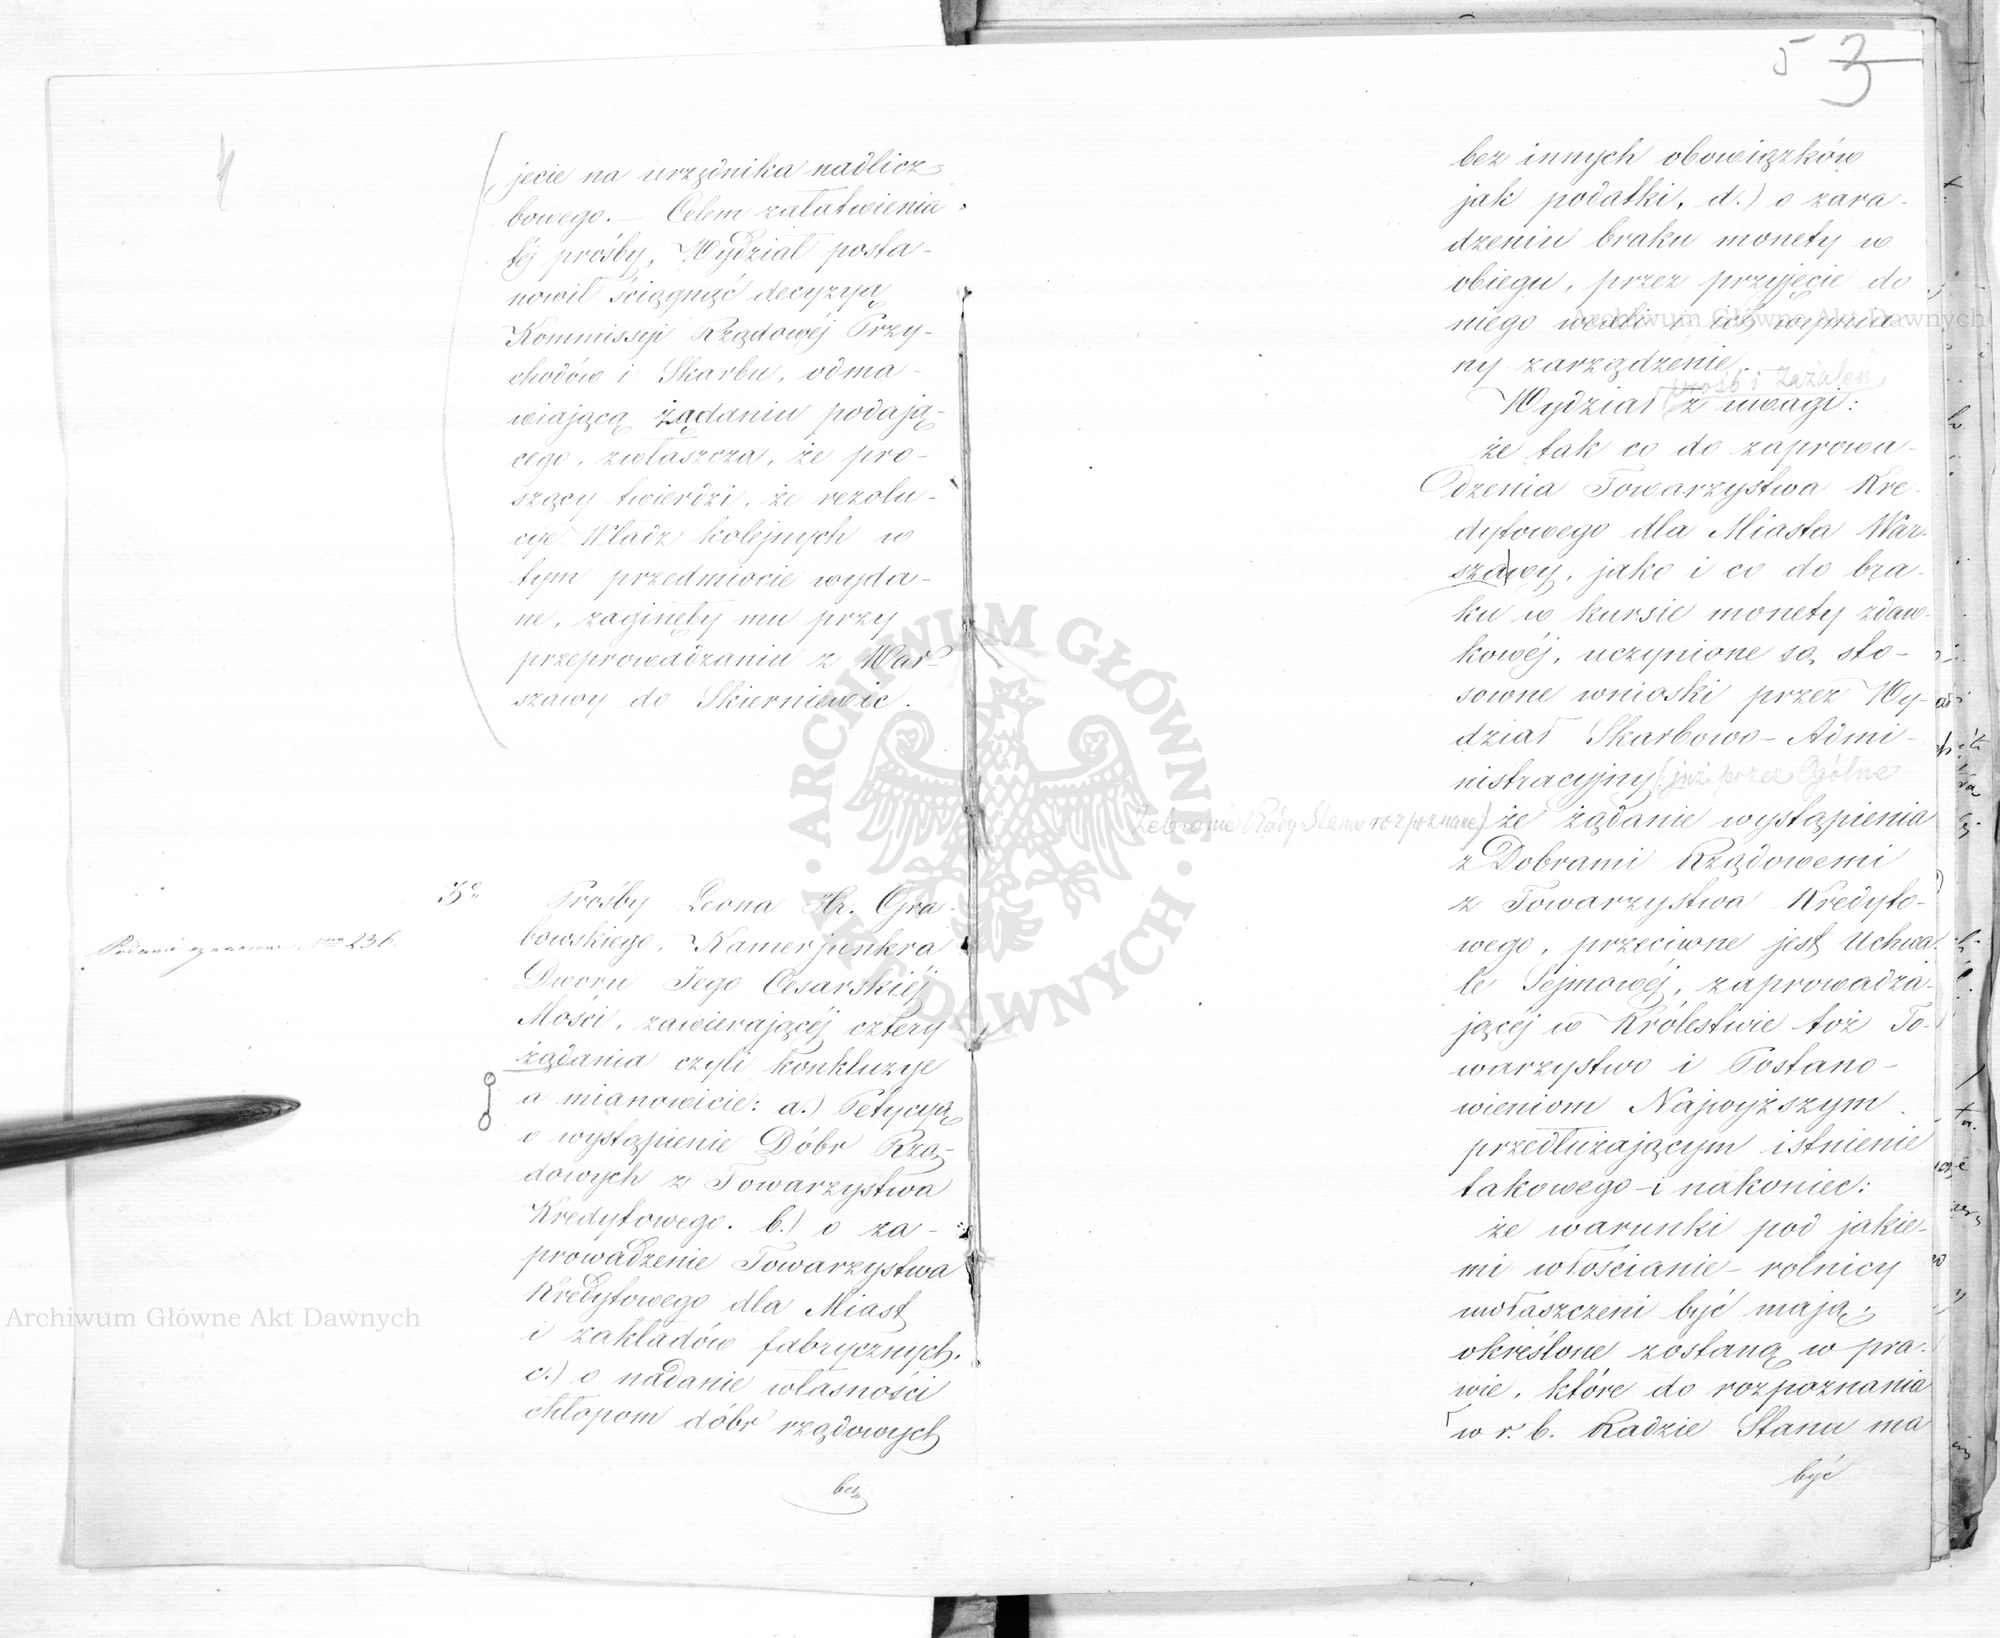 4
jęcie na urzędnika nadlicz-
bowego. — Celem załatwienia
téj prośby, Wydział posta-
nowił ściągnąć decyzyą
Kommissyi Rządowéj Przy-
chodów i Skarbu, odma-
wiającą żądaniu podają-
cego, zwłaszcza, że pro-
szący twierdzi, że rezolu-
cye Władz kolejnych w
tym przedmiocie wyda-
ne, zaginęły mu przy
przeprowadzaniu z War-
szawy do Skierniewic.
3º Prośby Leona Hr. Gra-
bowskiego, Kamerjunkra
Dworu Jego Cesarskiéj
Mości, zawierającéj cztery
żądania czyli konkluzye
a mianowicie: a.) Petycyą
o wystąpienie Dóbr Rzą-
dowych z Towarzystwa
Kredytowego. b.) o za-
prowadzenie Towarzystwa
Kredytowego dla Miast
i zakładów fabrycznych.
c.) o nadanie własności
chłopom dóbr rządowych
bez
Podanie 236
5 3
bez innych obowiązków
jak podatki, d.) o zara-
dzeniu braku monety w
obiegu, przez przyjęcie do
niego
ny zarządzenie.
próśb i zażaleń
Wydział z uwagi:
że tak co do zaprowa-
dzenia Towarzystwa Kre-
dytowego dla Miasta War-
szawy, jako i co do bra-
ku w kursie monety zdaw-
kowéj, uczynione są sto-
sowne wnioski przez Wy-
dział Skarbowo-Admi-
nistracyjny (już przez Ogólne
Zebranie Rady Stanu rozpoznane) że żądanie wystąpienia
z Dobrami Rządowemi
z Towarzystwa Kredyto-
wego, przeciwne jest Uchwa-
le Sejmowéj, zaprowadza-
jącéj w Królestwie toż To-
warzystwo i Postano-
wieniom Najwyższym
przedłużającym istnienie
takowego - i nakoniec:
że warunki pod jakie-
mi włościanie-rolnicy
uwłaszczeni być mają,
określone zostaną w pra-
wie, które do rozpoznania
w r. b. Radzie Stanu ma
być
Archiwum Główne Akt Dawnych
Archiwum Główne Akt Dawnych
ARCHIWUM GŁÓWNE AKT DAWNYCH